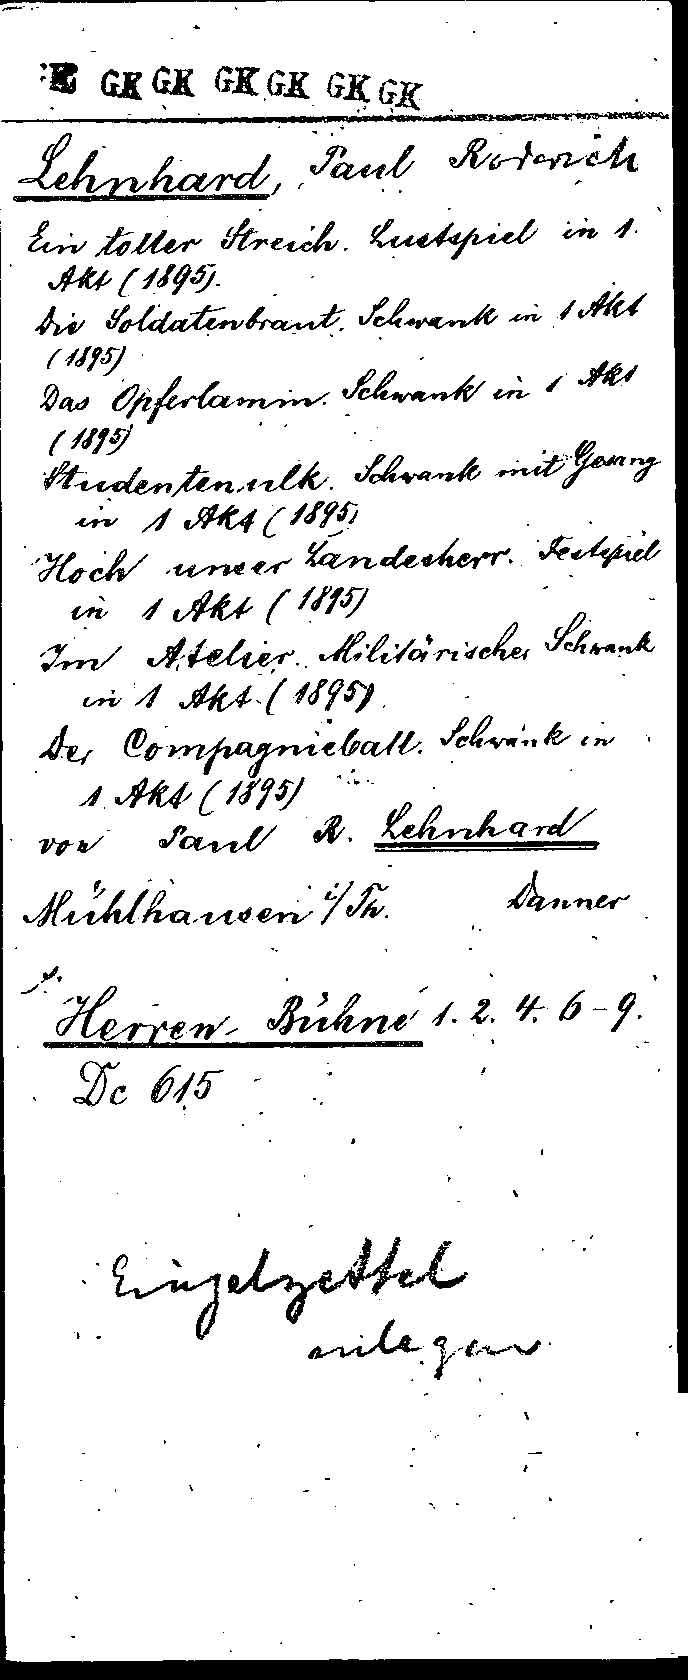 GK GK GK GK GK GK GK
Lehnhard, Paul Roderich
Ein toller Streich. Lustspiel in 1.
Akt (1895).
Die Soldatenbraut. Schwank in 1 Akt
(1895)
Das Opferlamm. Schwank in 1 Akt
(1895)
Studentenulk. Schwank mit Gesang
in 1 Akt (1895)
Hoch unser Landesherr. Festspiel
in 1 Akt (1895)
Im Atelier. Militärischer Schwank
in 1 Akt. (1895)
Der Compagnieball. Schwank in
1 Akt (1895)
von Paul R. Lehnhard
Mühlhausen i/Th. Danner
Herren-Bühne 1. 2. 4. 6-9.
Dc 615
Einzelzettel